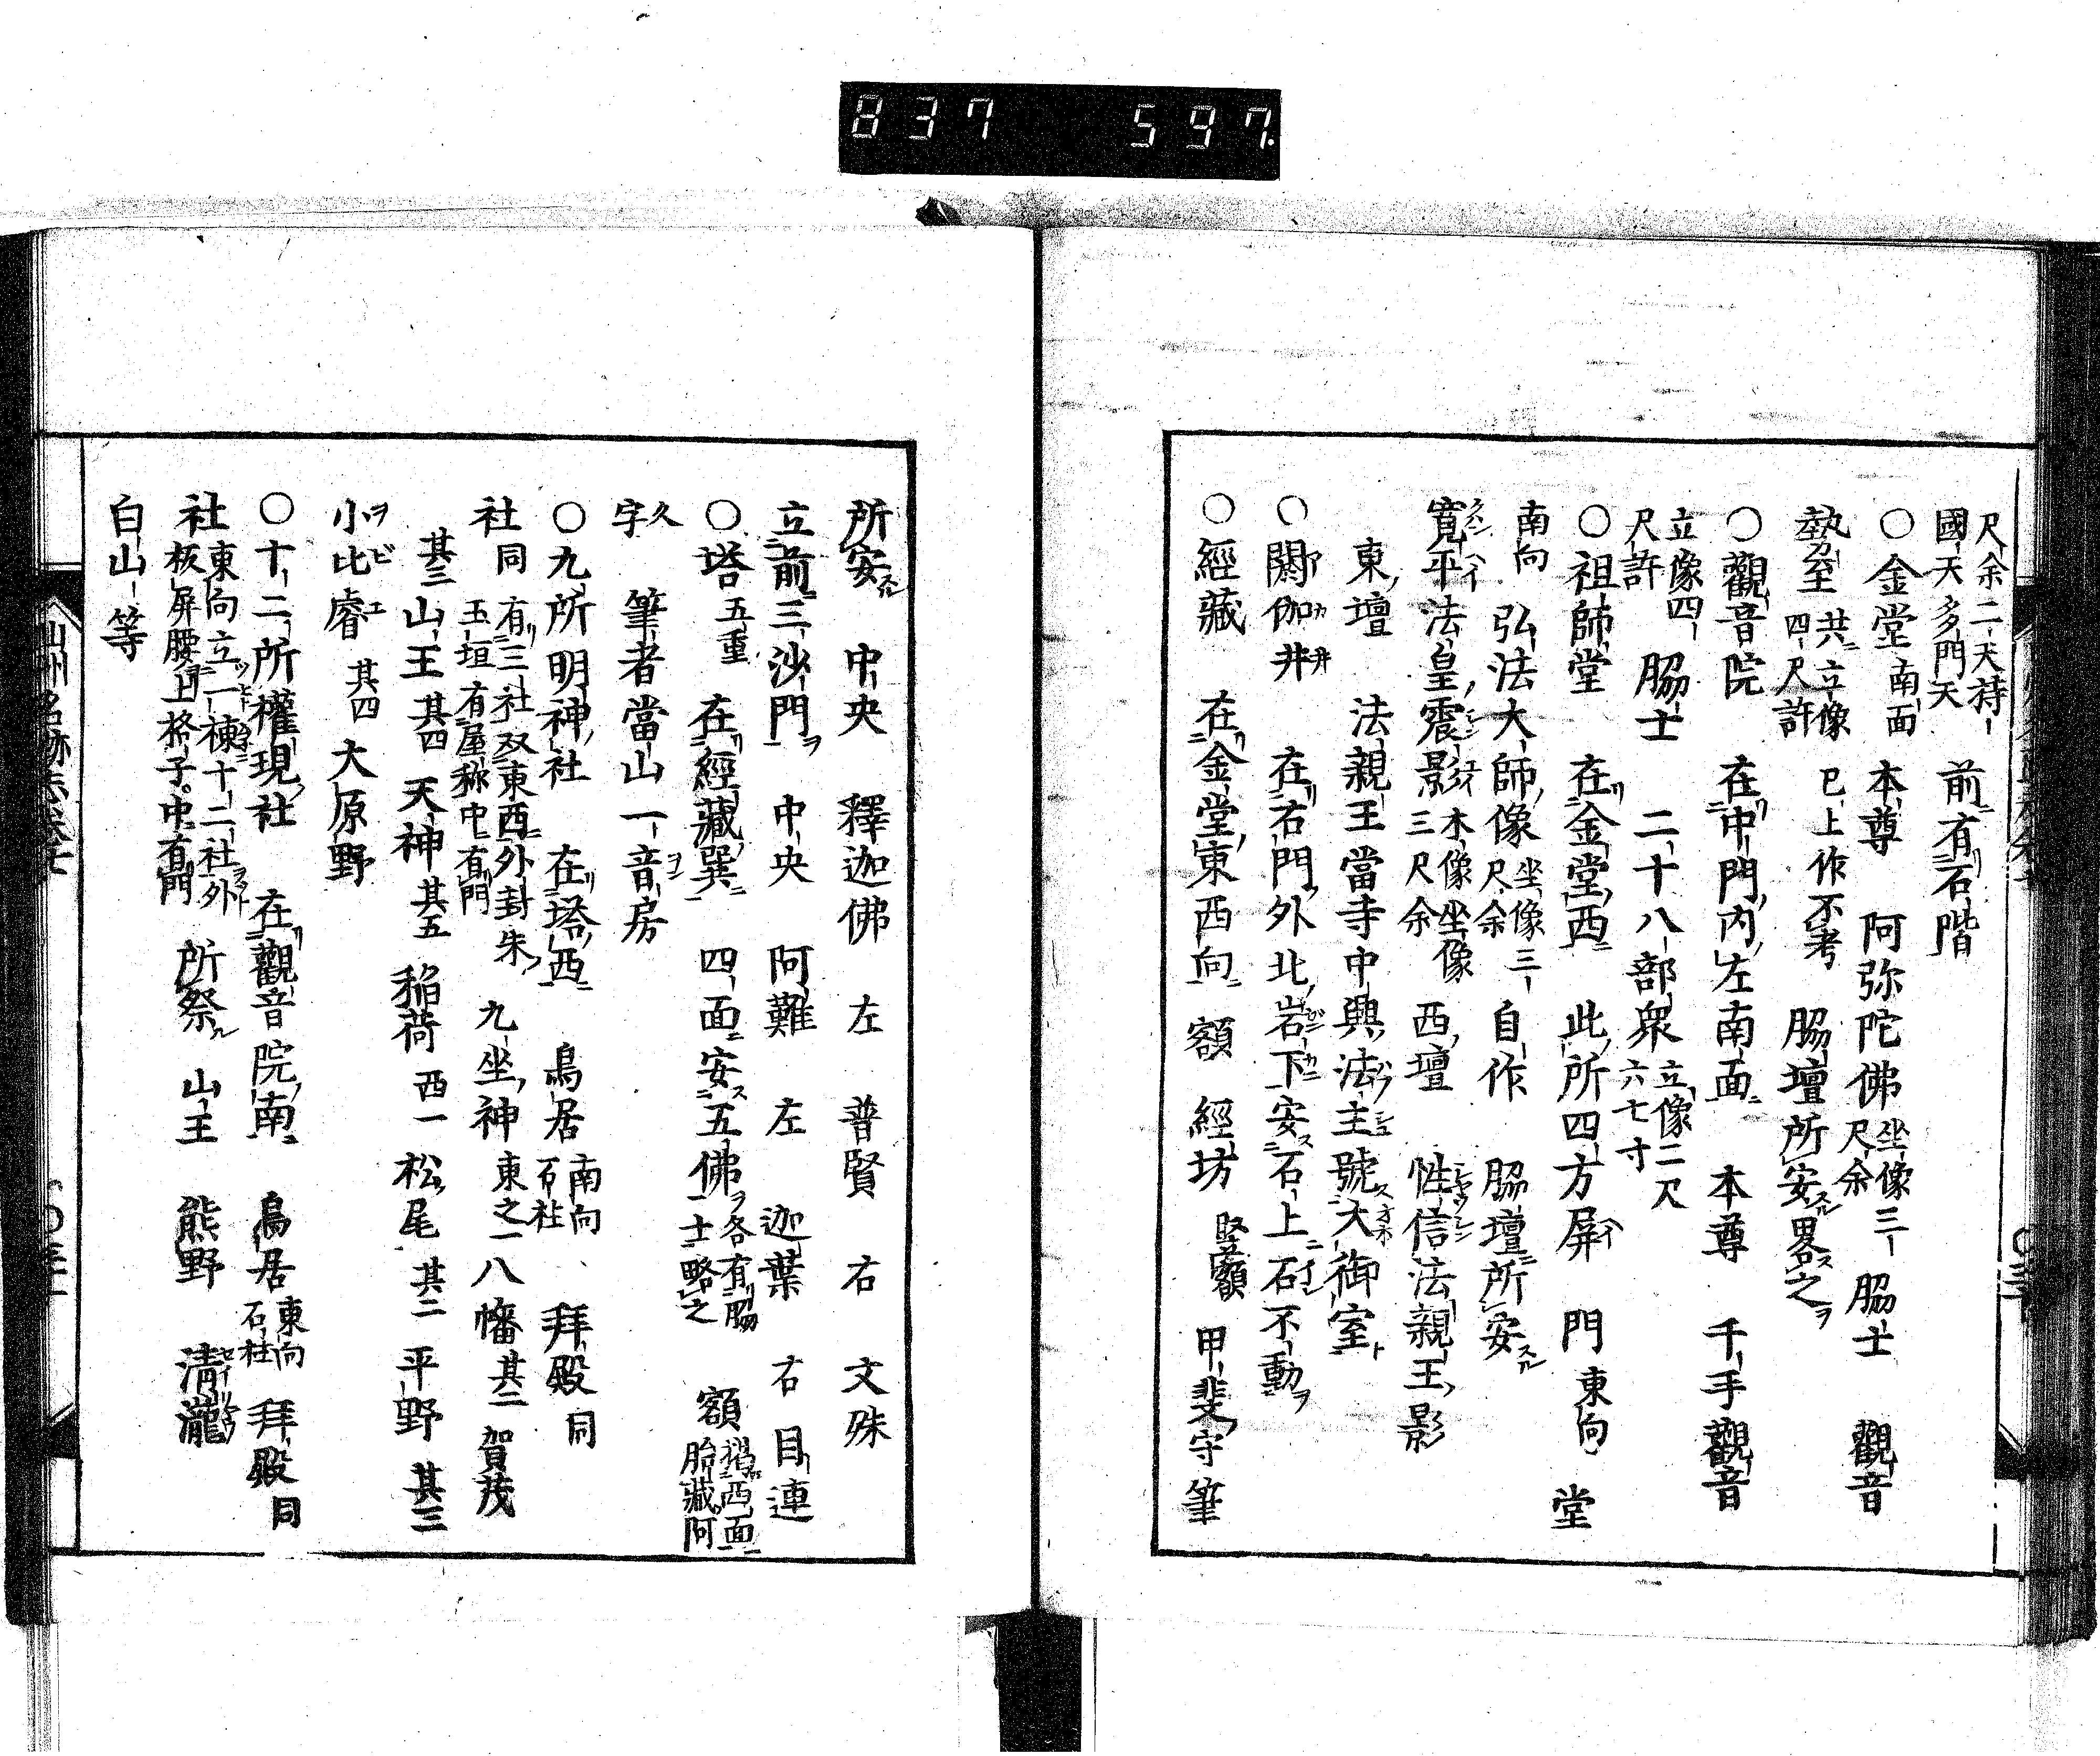 837 597.
尺余二天持
國天多門天 前有石階
○金堂 南面 本尊 阿弥陀佛 坐像三尺余 脇士 觀音
勢至 共立像四尺許 已上作不考 脇壇所安畧之
○觀音院 在中門内左南面 本尊 千手觀音
立像四尺許 脇士 二十八部衆 立像二尺六七寸
○祖師堂 在金堂西 此所四方屏 門 東向 堂
南向 弘法大師像 坐像三尺余 自作 脇壇所安
寛平法皇震影 木像坐像三尺余 西壇 性信法親王影
東壇 法親王當寺中興法主號大御室
○閼伽井 在右門外北岩下安石上石不動
○經藏 在金堂東西向 額 經坊 竪額 甲斐守筆
所安 中央 釋迦佛 左 普賢 右 文殊
立前三沙門 中央 阿難 左 迦葉 右 目連
○塔 五重 在經藏巽 四面安五佛 各有脇士略之 額 掲西面胎藏阿
字 筆者當山一音房
○九所明神社 在塔西 鳥居 南向石柱 拜殿 同
社 同 有三社双東西外封朱玉垣有屋称中有門 九坐神 東之一 八幡 其二 賀茂
其三 山王 其四 天神 其五 稲荷 西一 松尾 其二 平野 其三
小比睿 其四 大原野
○十二所權現社 在觀音院南 鳥居 東向石柱 拜殿 同
社 東向立一棟十二社外板屏腰上格子中有門 所祭 山王 熊野 淸瀧
白山等